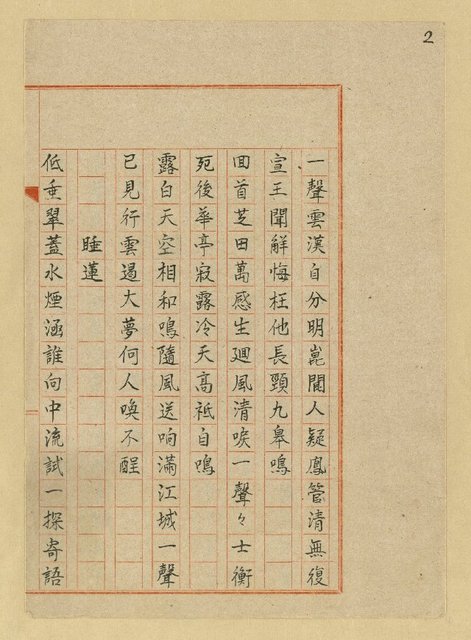 2
一聲雲漢自分明崑閬人疑鳳管清無復
宣王聞解悔枉他長頸九皋鳴
回首芝田萬感生迴風清唳一聲々士衡
死後華亭寂露冷天高祇自鳴
露白天空相和鳴隨風送响滿江城一聲
已見行雲遏大夢何人喚不醒
睡蓮
低垂翠蓋水煙涵誰向中流試一探寄語